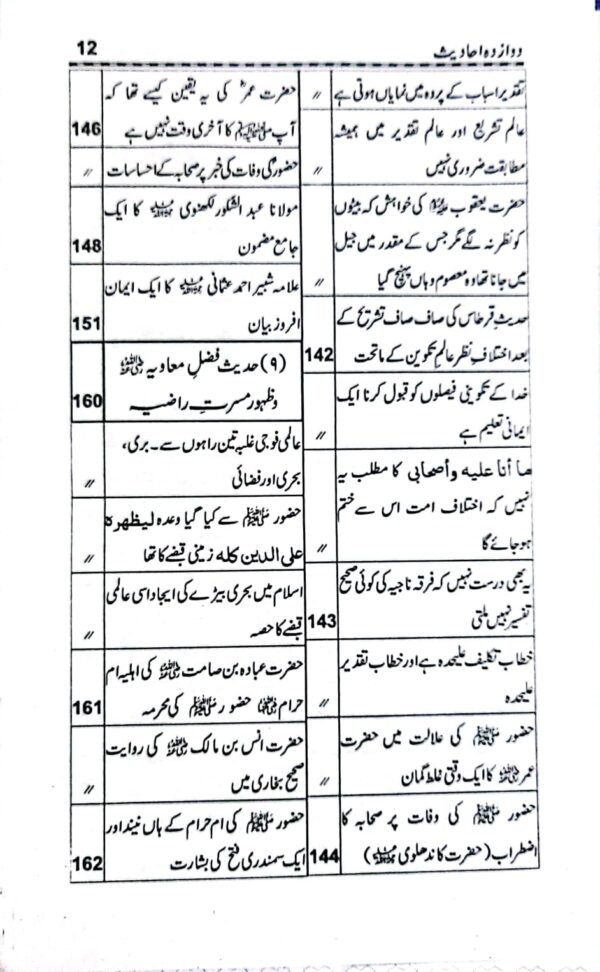 دوازدہ احادیث
12
تقدیر اسباب کے پردہ میں نمایاں ہوتی ہے
〃
عالم تشریع اور عالم تقدیر میں ہمیشہ
مطابقت ضروری نہیں
〃
حضرت یعقوب علیہ السلام کی خواہش کہ بیٹوں
کو نظر نہ لگے مگر جس کے مقدر میں جیل
میں جانا تھا وہ معصوم وہاں پہنچ گیا
〃
حدیث قرطاس کی صاف صاف تشریح کے
بعد اختلاف نظر عالم تکوین کے ماتحت
142
خدا کے تکوینی فیصلوں کو قبول کرنا ایک
ایمانی تعلیم ہے
〃
ما أنا علیہ وأصحابی کا مطلب یہ
نہیں کہ اختلاف امت اس سے ختم
ہو جائے گا
〃
یہ بھی درست نہیں کہ فرقہ ناجیہ کی کوئی صحیح
تفسیر نہیں ملتی
143
خطاب تکلیف علیحدہ ہے اور خطاب تقدیر
علیحدہ
〃
حضور ﷺ کی علالت میں حضرت
عمر رضی اللہ عنہ کا ایک وقتی غلط گمان
〃
حضور ﷺ کی وفات پر صحابہ کا
اضطراب (حضرت کاندھلوی رحمۃ اللہ علیہ)
144
حضرت عمرؓ کی یہ یقین کیسے تھا کہ
آپ ﷺ کا آخری وقت نہیں ہے
146
حضورؐ کی وفات کی خبر پر صحابہ کے احساسات
〃
مولانا عبد الشکور لکھنوی رحمۃ اللہ علیہ کا ایک
جامع مضمون
148
علامہ شبیر احمد عثمانی رحمۃ اللہ علیہ کا ایک ایمان
افروز بیان
151
(۹) حدیث فضلِ معاویہ رضی اللہ عنہ
و ظہور مسرتِ راضیہ
160
عالمی فوجی غلبہ تین راہوں سے۔ بری،
بحری اور فضائی
〃
حضور ﷺ سے کیا گیا وعدہ لیظهره
علی الدین کله زمینی قبضے کا تھا
〃
اسلام میں بحری بیڑے کی ایجاد اسی عالمی
قبضے کا حصہ
〃
حضرت عبادہ بن صامت رضی اللہ عنہ کی اہلیہ ام
حرام رضی اللہ عنہا حضور ﷺ کی محرمہ
161
حضرت انس بن مالک رضی اللہ عنہ کی روایت
صحیح بخاری میں
〃
حضور ﷺ کی ام حرام کے ہاں نیند اور
ایک سمندری فتح کی بشارت
162